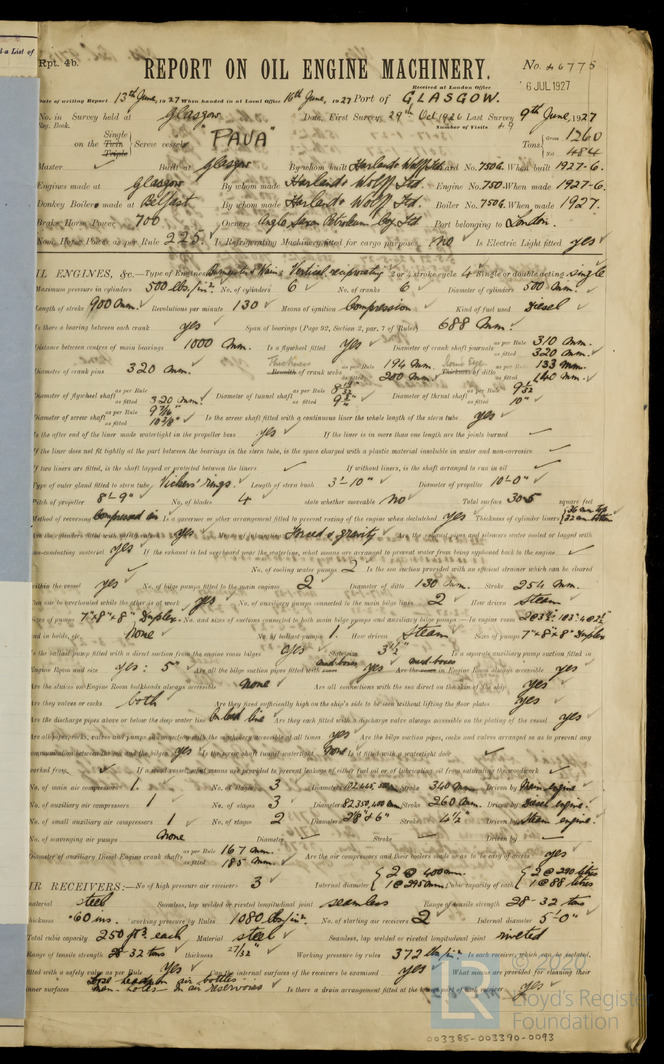 Rpt. 4b.
REPORT ON OIL ENGINE MACHINERY.
No. 46775
Received at London Office
6 JUL 1927
Date of writing Report 13th June, 1927 When handed in at Local Office 16th June, 1927 Port of GLASGOW.
No. in Survey held at Glasgow Date, First Survey 29th Oct 1926 Last Survey 9th June, 1927
Reg. Book. Number of Visits 49
on the Single Twin Triple Screw vessel "PAUA" Tons Gross 1260 Net 484
Master Built at Glasgow By whom built Harland & Wolff Ltd Yard No. 750G. When built 1927-6.
Engines made at Glasgow By whom made Harland & Wolff Ltd. Engine No. 750. When made 1927-6.
Donkey Boilers made at Belfast By whom made Harland & Wolff Ltd. Boiler No. 750G. When made 1927.
Brake Horse Power 700 Owners Anglo Saxon Petroleum Coy. Ltd Port belonging to London.
Nom. Horse Power as per Rule 225. Is Refrigerating Machinery fitted for cargo purposes No Is Electric Light fitted yes
OIL ENGINES, &c.—Type of Engines Vertical 2 or 4 stroke cycle 4 Single or double acting single
Maximum pressure in cylinders 500 lbs/in². No. of cylinders 6 No. of cranks 6 Diameter of cylinders 500 mm.
Length of stroke 900 mm. Revolutions per minute 130 Means of ignition Compression Kind of fuel used Diesel
Is there a bearing between each crank yes Span of bearings (Page 92, Section 2, par. 7 of Rules) 688 mm.
Distance between centres of main bearings 1000 mm. Is a flywheel fitted Yes Diameter of crank shaft journals as per Rule 310 mm. as fitted 320 mm.
Diameter of crank pins 320 mm. Thickness Breadth of crank webs as per Rule 194 mm. as fitted 200 mm. Thickness of ditto as per Rule 133 mm.
Diameter of flywheel shaft as per Rule as fitted 320 mm. Diameter of tunnel shaft as per Rule as fitted Diameter of thrust shaft as per Rule 9 1/32 as fitted 10"
Diameter of screw shaft as per Rule 9 7/16 as fitted 10 3/8" Is the screw shaft fitted with a continuous liner the whole length of the stern tube yes
Is the after end of the liner made watertight in the propeller boss yes If the liner is in more than one length are the joints burned
If the liner does not fit tightly at the part between the bearings in the stern tube, is the space charged with a plastic material insoluble in water and non-corrosive
If two liners are fitted, is the shaft lapped or protected between the liners If without liners, is the shaft arranged to run in oil
Type of outer gland fitted to stern tube Vickers' rings. Length of stern bush 3'-10" Diameter of propeller 10'-0"
Pitch of propeller 8'-9" No. of blades 4 state whether moveable No Total surface 30.5 square feet
Method of reversing Compressed air Is a governor or other arrangement fitted to prevent racing of the engine when declutched yes Thickness of cylinder liners
Are the cylinders fitted with safety valves yes Means of lubrication Forced & gravity Are the exhaust pipes and silencers water cooled or lagged with
non-conducting material yes If the exhaust is led overboard near the waterline, what means are arranged to prevent water from being syphoned back to the engine
No. of cooling water pumps 2 Is the sea suction provided with an efficient strainer which can be cleared
within the vessel yes No. of bilge pumps fitted to the main engines 2 Diameter of ditto 130 mm. Stroke 254 mm.
Can one be overhauled while the other is at work yes No. of auxiliary pumps connected to the main bilge lines 2 How driven Steam
Sizes of pumps 7"×8"×8" Duplex. No. and sizes of suctions connected to both main bilge pumps and auxiliary bilge pumps—In engine room
and in holds, etc. None No. of ballast pumps 1. How driven Steam Sizes of pumps 7"×8"×8" Duplex
Is the ballast pump fitted with a direct suction from the engine room bilges yes State size 3½" Is a separate auxiliary pump suction fitted in
Engine Room and size yes: 5" Are all the bilge suction pipes fitted with mud boxes yes Are the mud boxes in Engine Room always accessible yes
Are the sluices on Engine Room bulkheads always accessible None Are all connections with the sea direct on the skin of the ship yes
Are they valves or cocks both Are they fixed sufficiently high on the ship's side to be seen without lifting the floor plates yes
Are the discharge pipes above or below the deep water line Are they each fitted with a discharge valve always accessible on the plating of the vessel yes
Are all pipes, cocks, valves and pumps in connection with the machinery accessible at all times yes Are the bilge suction pipes, cocks and valves arranged so as to prevent any
communication between the sea and the bilges yes Is the screw shaft tunnel watertight None Is it fitted with a watertight door
worked from If a wood vessel what means are provided to prevent leakage of either fuel oil or of lubricating oil from saturating the woodwork
No. of main air compressors 1. No. of stages 3 Diameters Stroke 340 mm. Driven by Main engine
No. of auxiliary air compressors 1 No. of stages 3 Diameters Stroke 260 mm. Driven by Diesel engine.
No. of small auxiliary air compressors 1 No. of stages 2 Diameters Stroke 4½" Driven by Steam engine.
No. of scavenging air pumps None Diameter Stroke Driven by
Diameter of auxiliary Diesel Engine crank shafts as per Rule 167 mm. as fitted 185 mm. Are the air compressors and their coolers made so as to be easy of access yes
AIR RECEIVERS:—No. of high pressure air receivers 3 Internal diameter 2 @ 400 mm. 1 @ 295 mm. Cubic capacity of each 2 @ 290 litres 1 @ 88 litres
material steel Seamless, lap welded or riveted longitudinal joint seamless Range of tensile strength 28-32 tons
thickness .60 ins. working pressure by Rules 1080 lbs/in². No. of starting air receivers 2 Internal diameter 5'-0"
Total cubic capacity 250 ft³ each Material steel Seamless, lap welded or riveted longitudinal joint riveted
Range of tensile strength 28-32 tons thickness 27/32" Working pressure by rules 372 lbs/in² Is each receiver, which can be isolated,
fitted with a safety valve as per Rule Yes Can the internal surfaces of the receivers be examined yes What means are provided for cleaning their
inner surfaces man-holes in air reservoirs Is there a drain arrangement fitted at the yes
© 2020
LR
Lloyd's Register
Foundation
003385-003390-0093